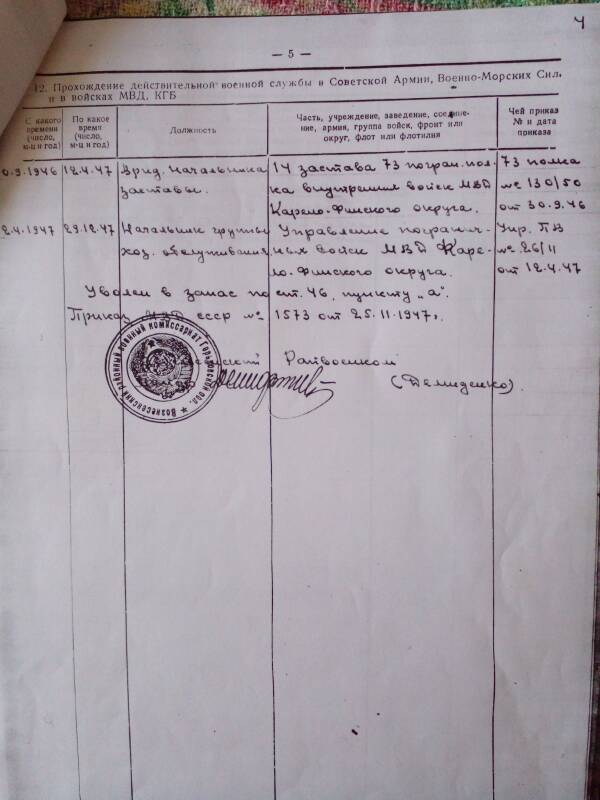 4
— 5 —
12. Прохождение действительной военной службы в Советской Армии, Военно-Морских Сил.
и в войсках МВД, КГБ
С какого времени (число, м-ц и год)
По какое время (число, м-ц и год)
Должность
Часть, учреждение, заведение, соедине-
ние, армия, группа войск, фронт или
округ, флот или флотилия
Чей приказ № и дата приказа
0.9.1946 12.4.47 Врид. Начальника 14 застава 73 погран. пол- 73 полка
заставы. ка внутренних войск МВД № 130/50
Карело-Финского округа. от 30.9.46
2.4.1947 29.12.47 Начальник группы Управление погранич- Упр. ПВ
хоз. обслуживания ных войск МВД Каре- № 26/11
ло-Финского округа. от 12.4.47
Уволен в запас по ст. 46, пункту „а".
Приказ МВД СССР № 1573 от 25.11.1947г.
Райвоенком
(Демиденко)
★ Вознесенский районный военный комиссариат Горьковской обл.